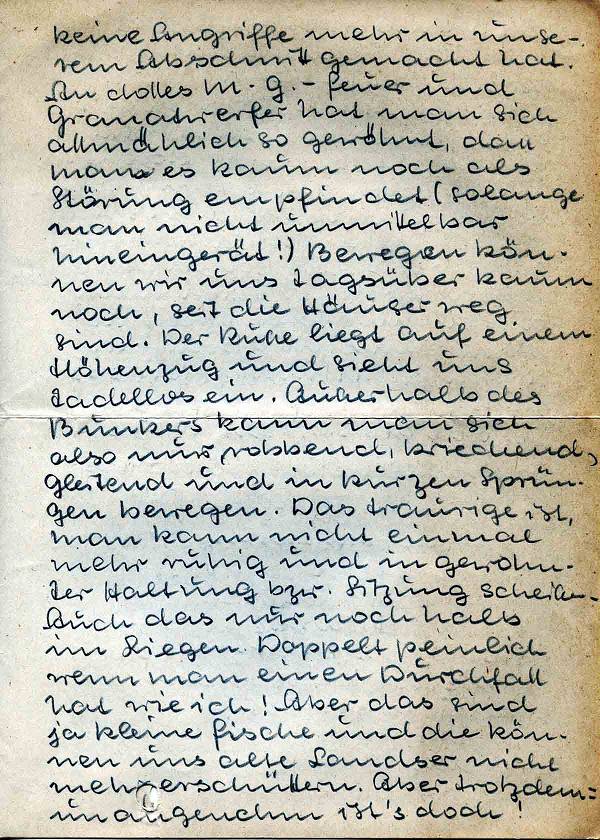 keine Angriffe mehr in unse-
rem Abschnitt gemacht hat.
An dolles M.G.-feuer und
Granatwerfer hat man sich
allmählich so gewöhnt, daß
man es kaum noch als
Störung empfindet (solange
man nicht unmittelbar
hineingerät!) Bewegen kön-
nen wir uns tagsüber kaum
noch, seit die Häuser weg
sind. Der Ruße liegt auf einem
Höhenzug und sieht uns
tadellos ein. Außerhalb des
Bunkers kann man sich
also nur robbend, kriechend,
gleitend und in kurzen Sprün-
gen bewegen. Das traurige ist,
man kann nicht einmal
mehr ruhig und in gewohn-
ter Haltung bzw. Sitzung scheißen.
Auch das nur noch halb
im Liegen. Doppelt peinlich
wenn man einen Durchfall
hat wie ich! Aber das sind
ja kleine fische und die kön-
nen uns alte Landser nicht
mehr erschüttern. Aber trotzdem=
unangenehm ist's doch!